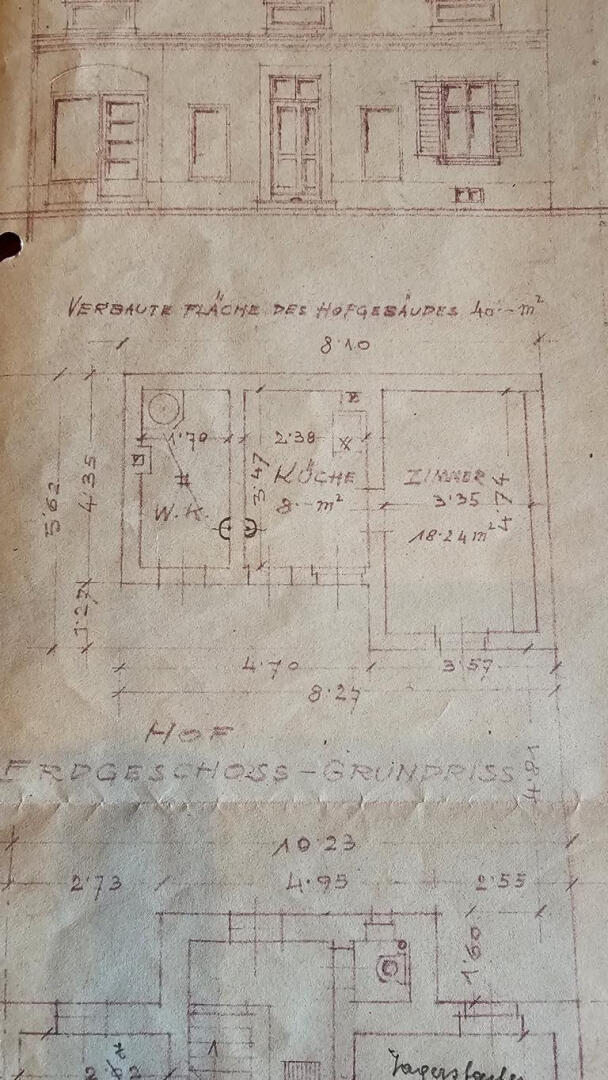 VERBAUTE FLÄCHE DES HOFGEBÄUDES 40·– m²
8·10
1·70
2·38
KÜCHE
8·– m²
3·47
W.K.
ZIMMER
3·35
4·74
18·24 m²
5·62
4·35
1·27
4·70
3·57
8·27
HOF
ERDGESCHOSS-GRUNDRISS
4·81
10·23
2·73
4·95
2·55
1·60
1